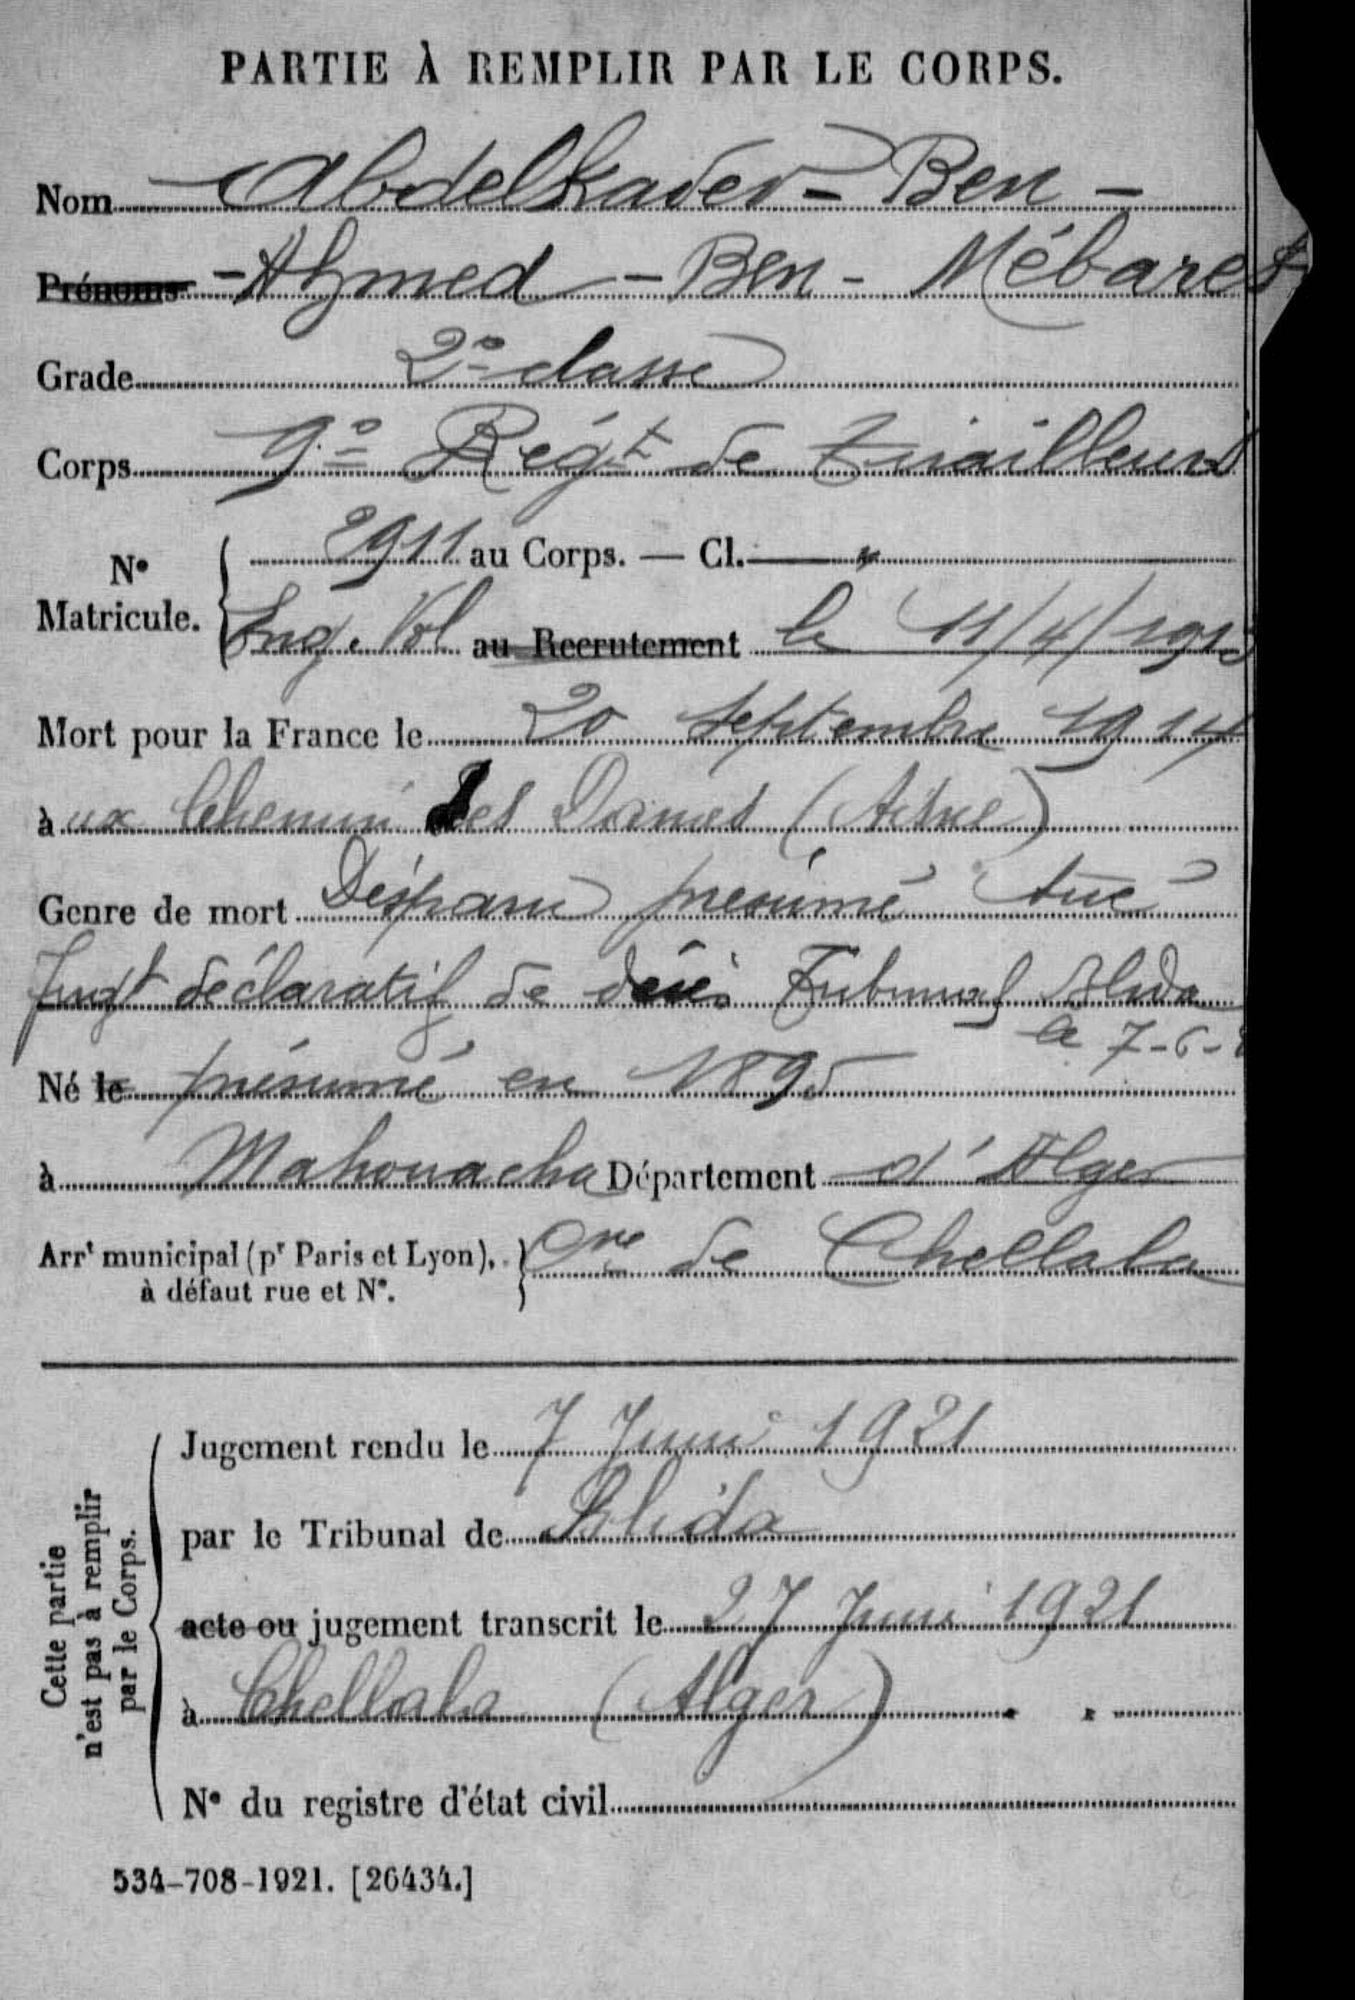 PARTIE À REMPLIR PAR LE CORPS.
Nom Abdelkader - Ben -
Prénoms - Ahmed - Ben - Mébarek
Grade 2e classe
Corps 9e Régt de tirailleurs
N° Matricule. 2911 au Corps. — Cl. "
Eng. Vol au Recrutement le 11/4/1913
Mort pour la France le 20 Septembre 1914
à ux Chemin des Dames (Aisne)
Genre de mort Disparu présumé tué
Jugt déclaratif de décès Tribunal Blida
le 7-6-
Né le présumé en 1895
à Mahouacha Département d'Alger
Arrt municipal (pr Paris et Lyon), à défaut rue et N°. Cne de Chellala
Cette partie n'est pas à remplir par le Corps.
Jugement rendu le 7 Juin 1921
par le Tribunal de Blida
acte ou jugement transcrit le 27 Juin 1921
à Chellala (Alger)
N° du registre d'état civil
534-708-1921. [26434.]